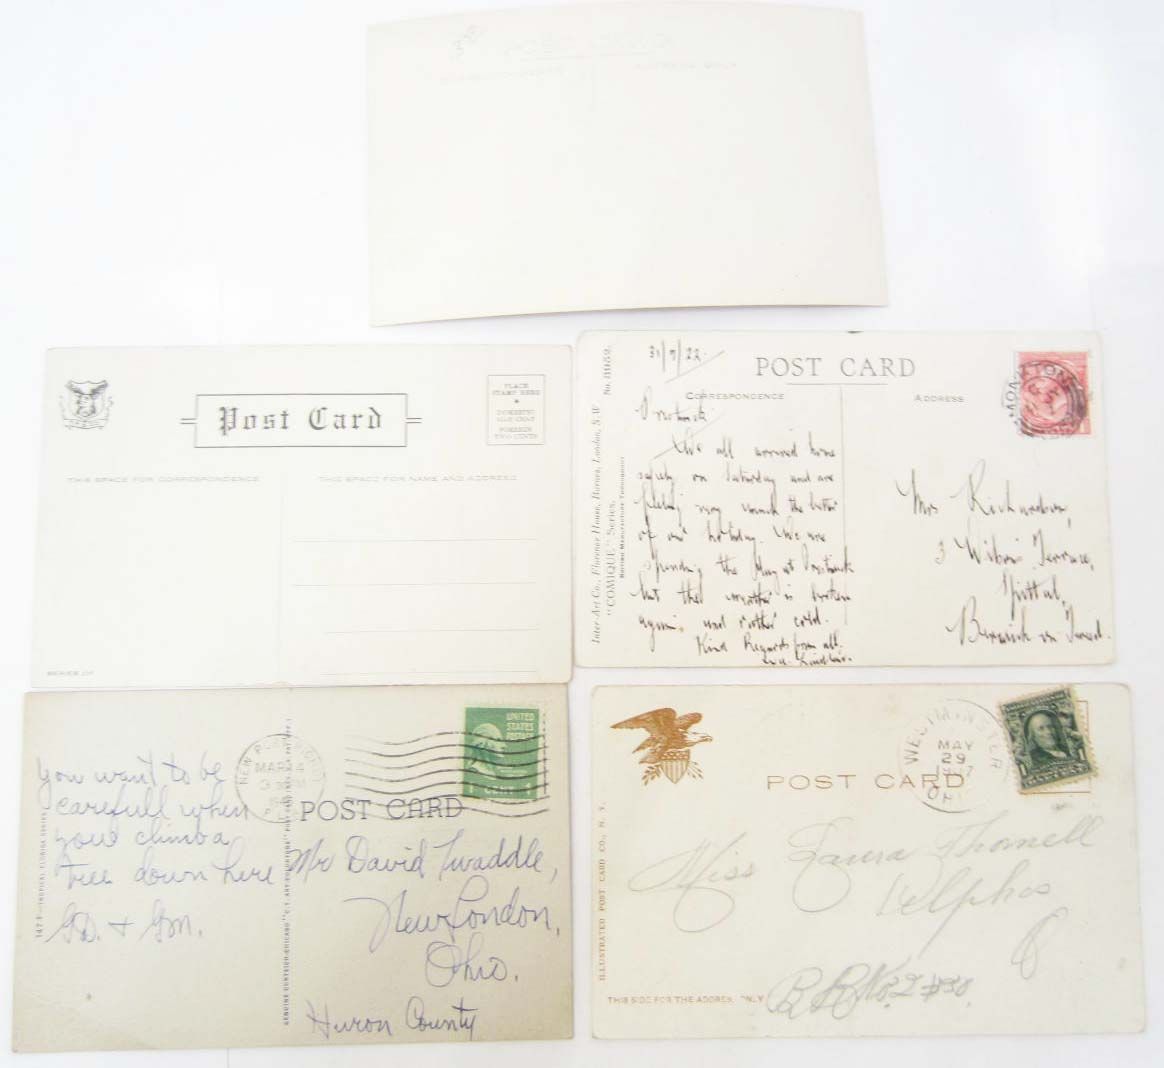 Post Card
PLACE
STAMP HERE
DOMESTIC
ONE CENT
FOREIGN
TWO CENTS
THIS SPACE FOR CORRESPONDENCE
THIS SPACE FOR NAME AND ADDRESS
31/7/22.
POST CARD
CORRESPONDENCE
ADDRESS
We all arrived home
safely on Saturday and are
feeling very much the better
of our holiday. We are
spending the day at
but the weather is broken
again, and rather cold.
Kind Regards from all.
Mrs Richardson,
3 Terrace,
Spittal,
Berwick on Tweed.
Inter-Art Co., Florence House, Barnes, London, S.W
"COMIQUE" Series.
No. 3952.
British Manufacture Throughout
you want to be
carefull when
your climb a
tree down here
GD. + GM.
POST CARD
MAR 4
UNITED
STATES
POSTAGE
Mr David Twaddle,
New London,
Ohio.
Huron County
147 F—TROPICAL FLORIDA SERIES
GENUINE CURTEICH-CHICAGO "C.T. ART-COLORTONE" POST CARD
POST CARD
WESTMINSTER
MAY
29
Miss Laura Thomell
Delphos
O
R R No. 2 #30.
THIS SIDE FOR THE ADDRESS ONLY
ILLUSTRATED POST CARD CO., N. Y.